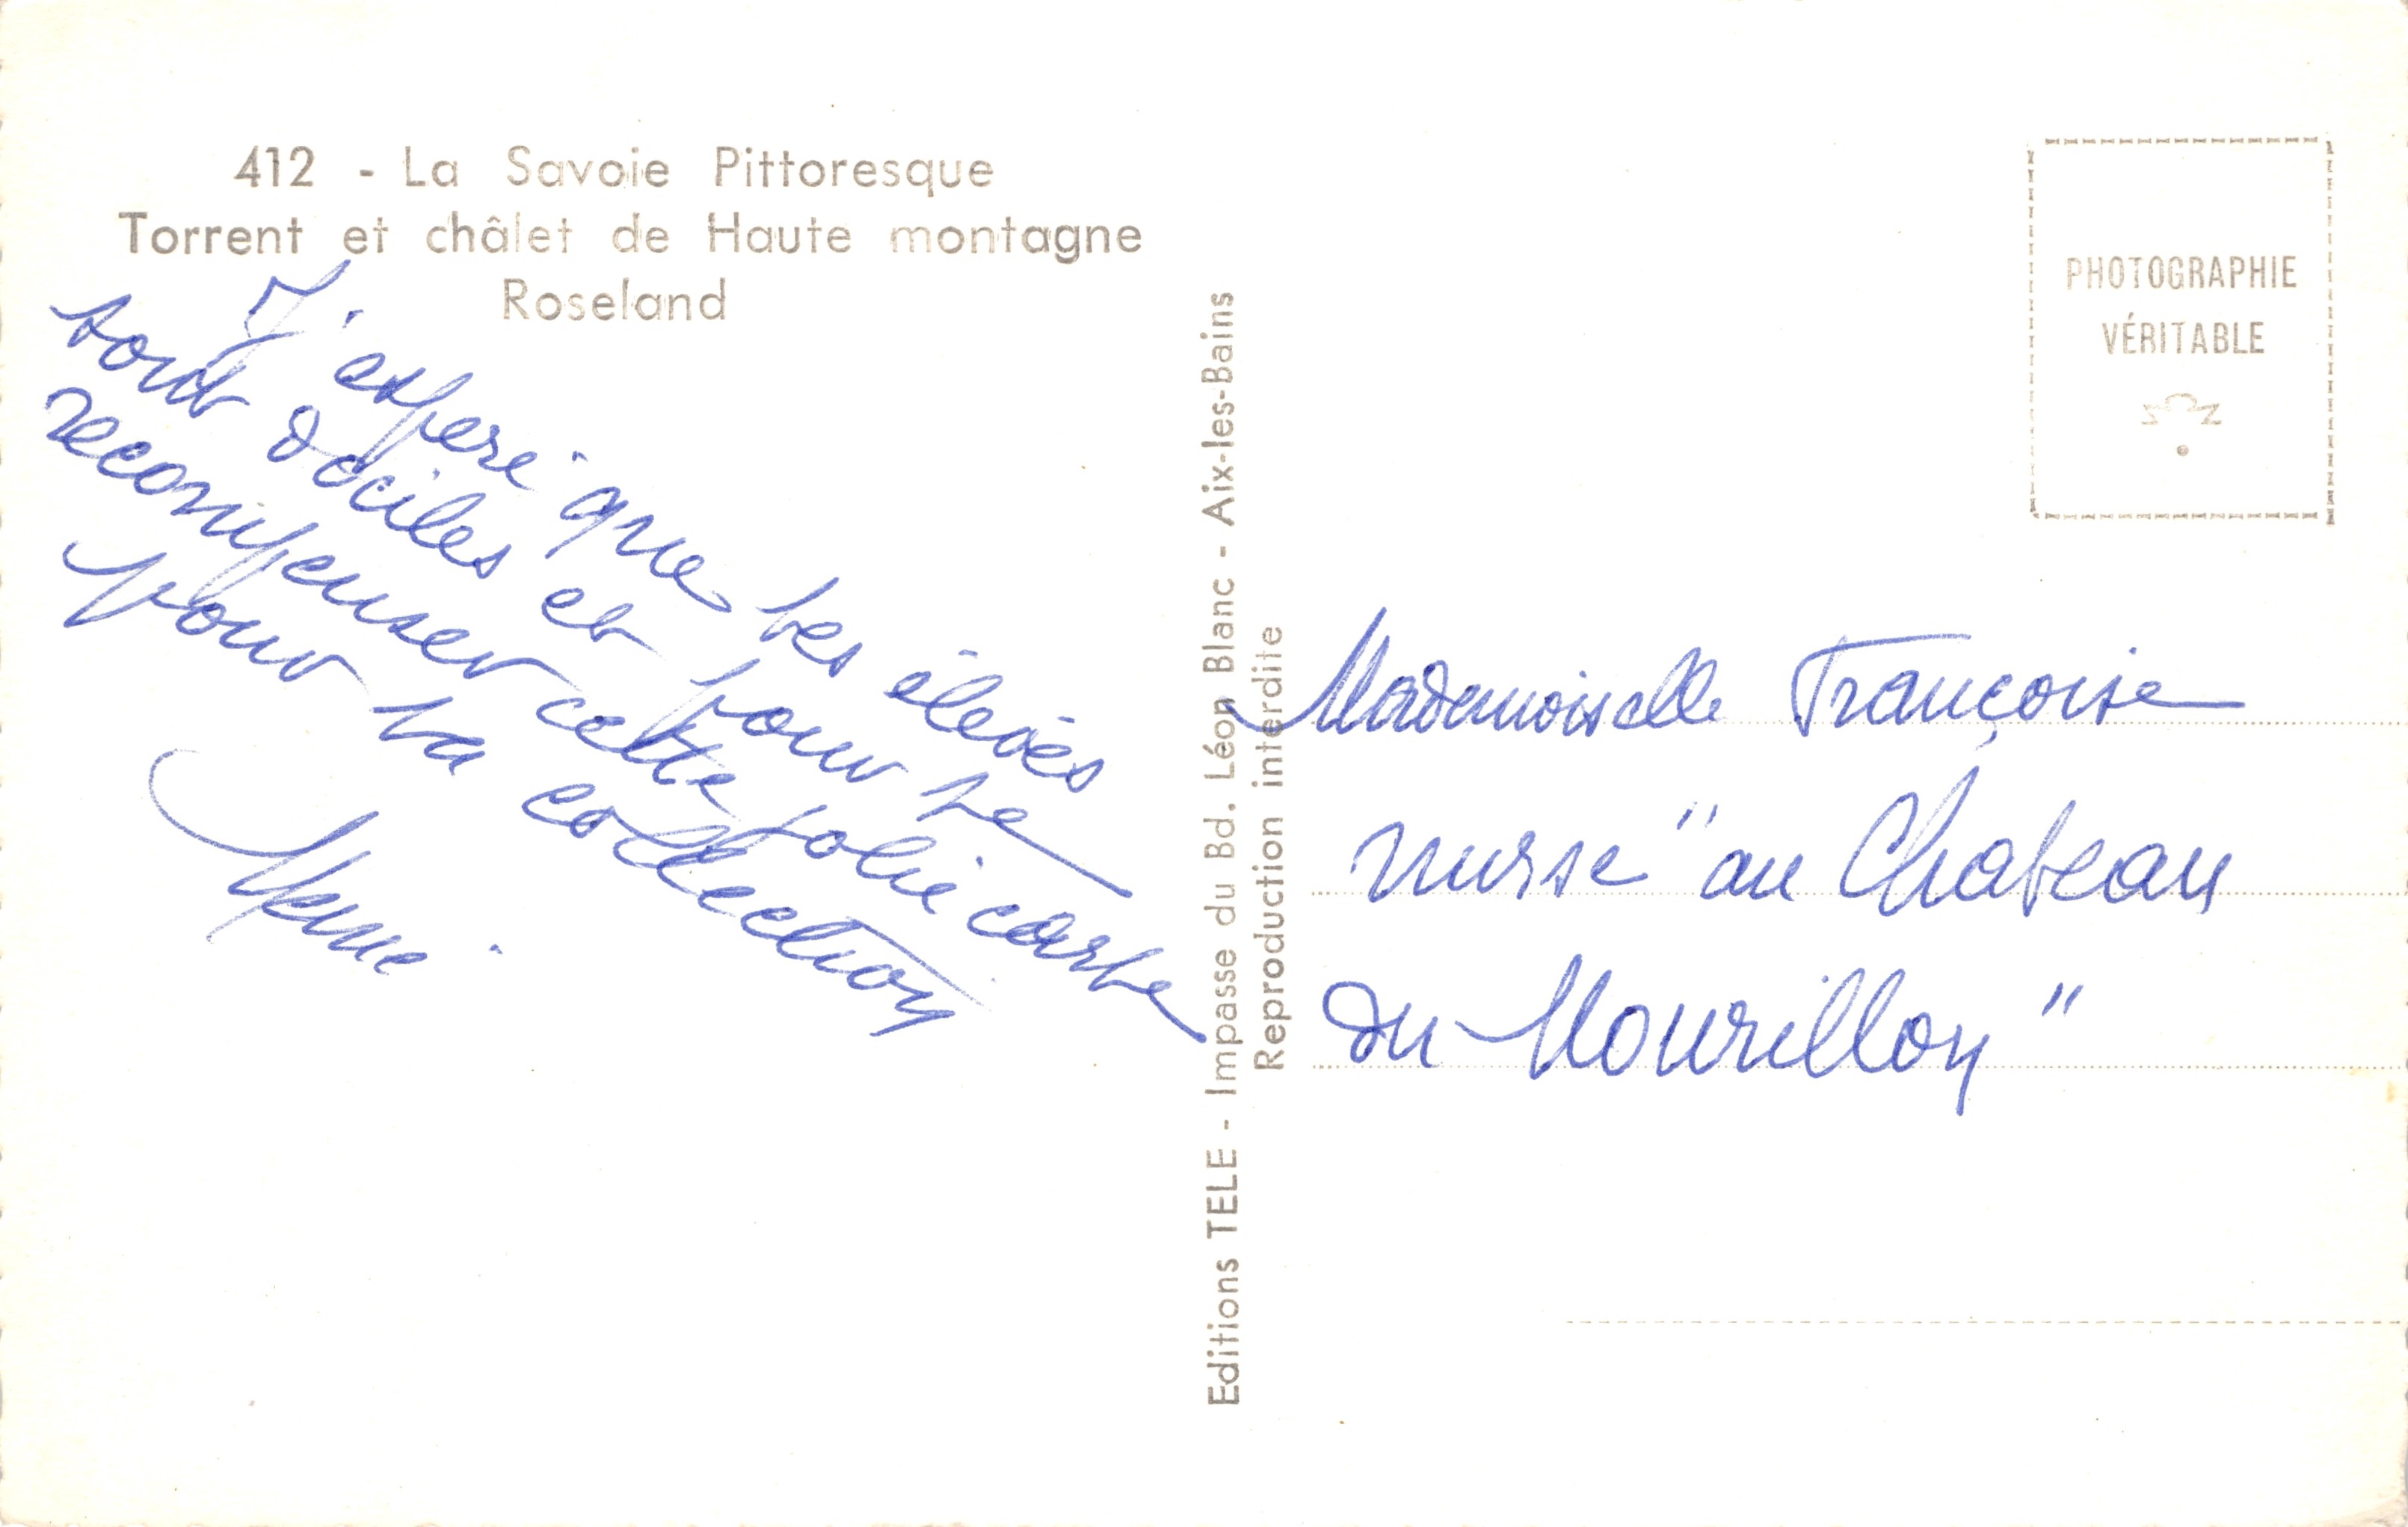 412 - La Savoie Pittoresque
Torrent et châlet de Haute montagne
Roseland
J'espere que tes élèves
sont dociles et pour te
recompenser cette jolie carte
pour ta collection
Editions TELE - Impasse du Bd. Léon Blanc - Aix-les-Bains
Reproduction interdite
PHOTOGRAPHIE
VÉRITABLE
Mademoiselle Françoise
nurse "au Chateau
du Mourillon"